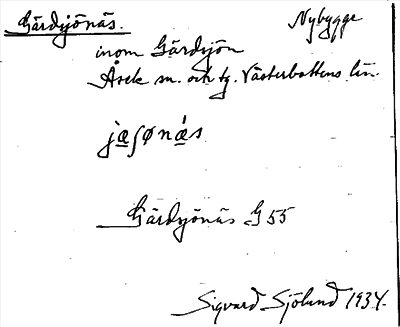 Gärdsjönäs. Nybygge
inom Gärdsjön
Åsele sn. och tg. Västerbottens län.
jæʃønæ's
Gärdsjönäs G 55
Sigvard Sjölund 1934.